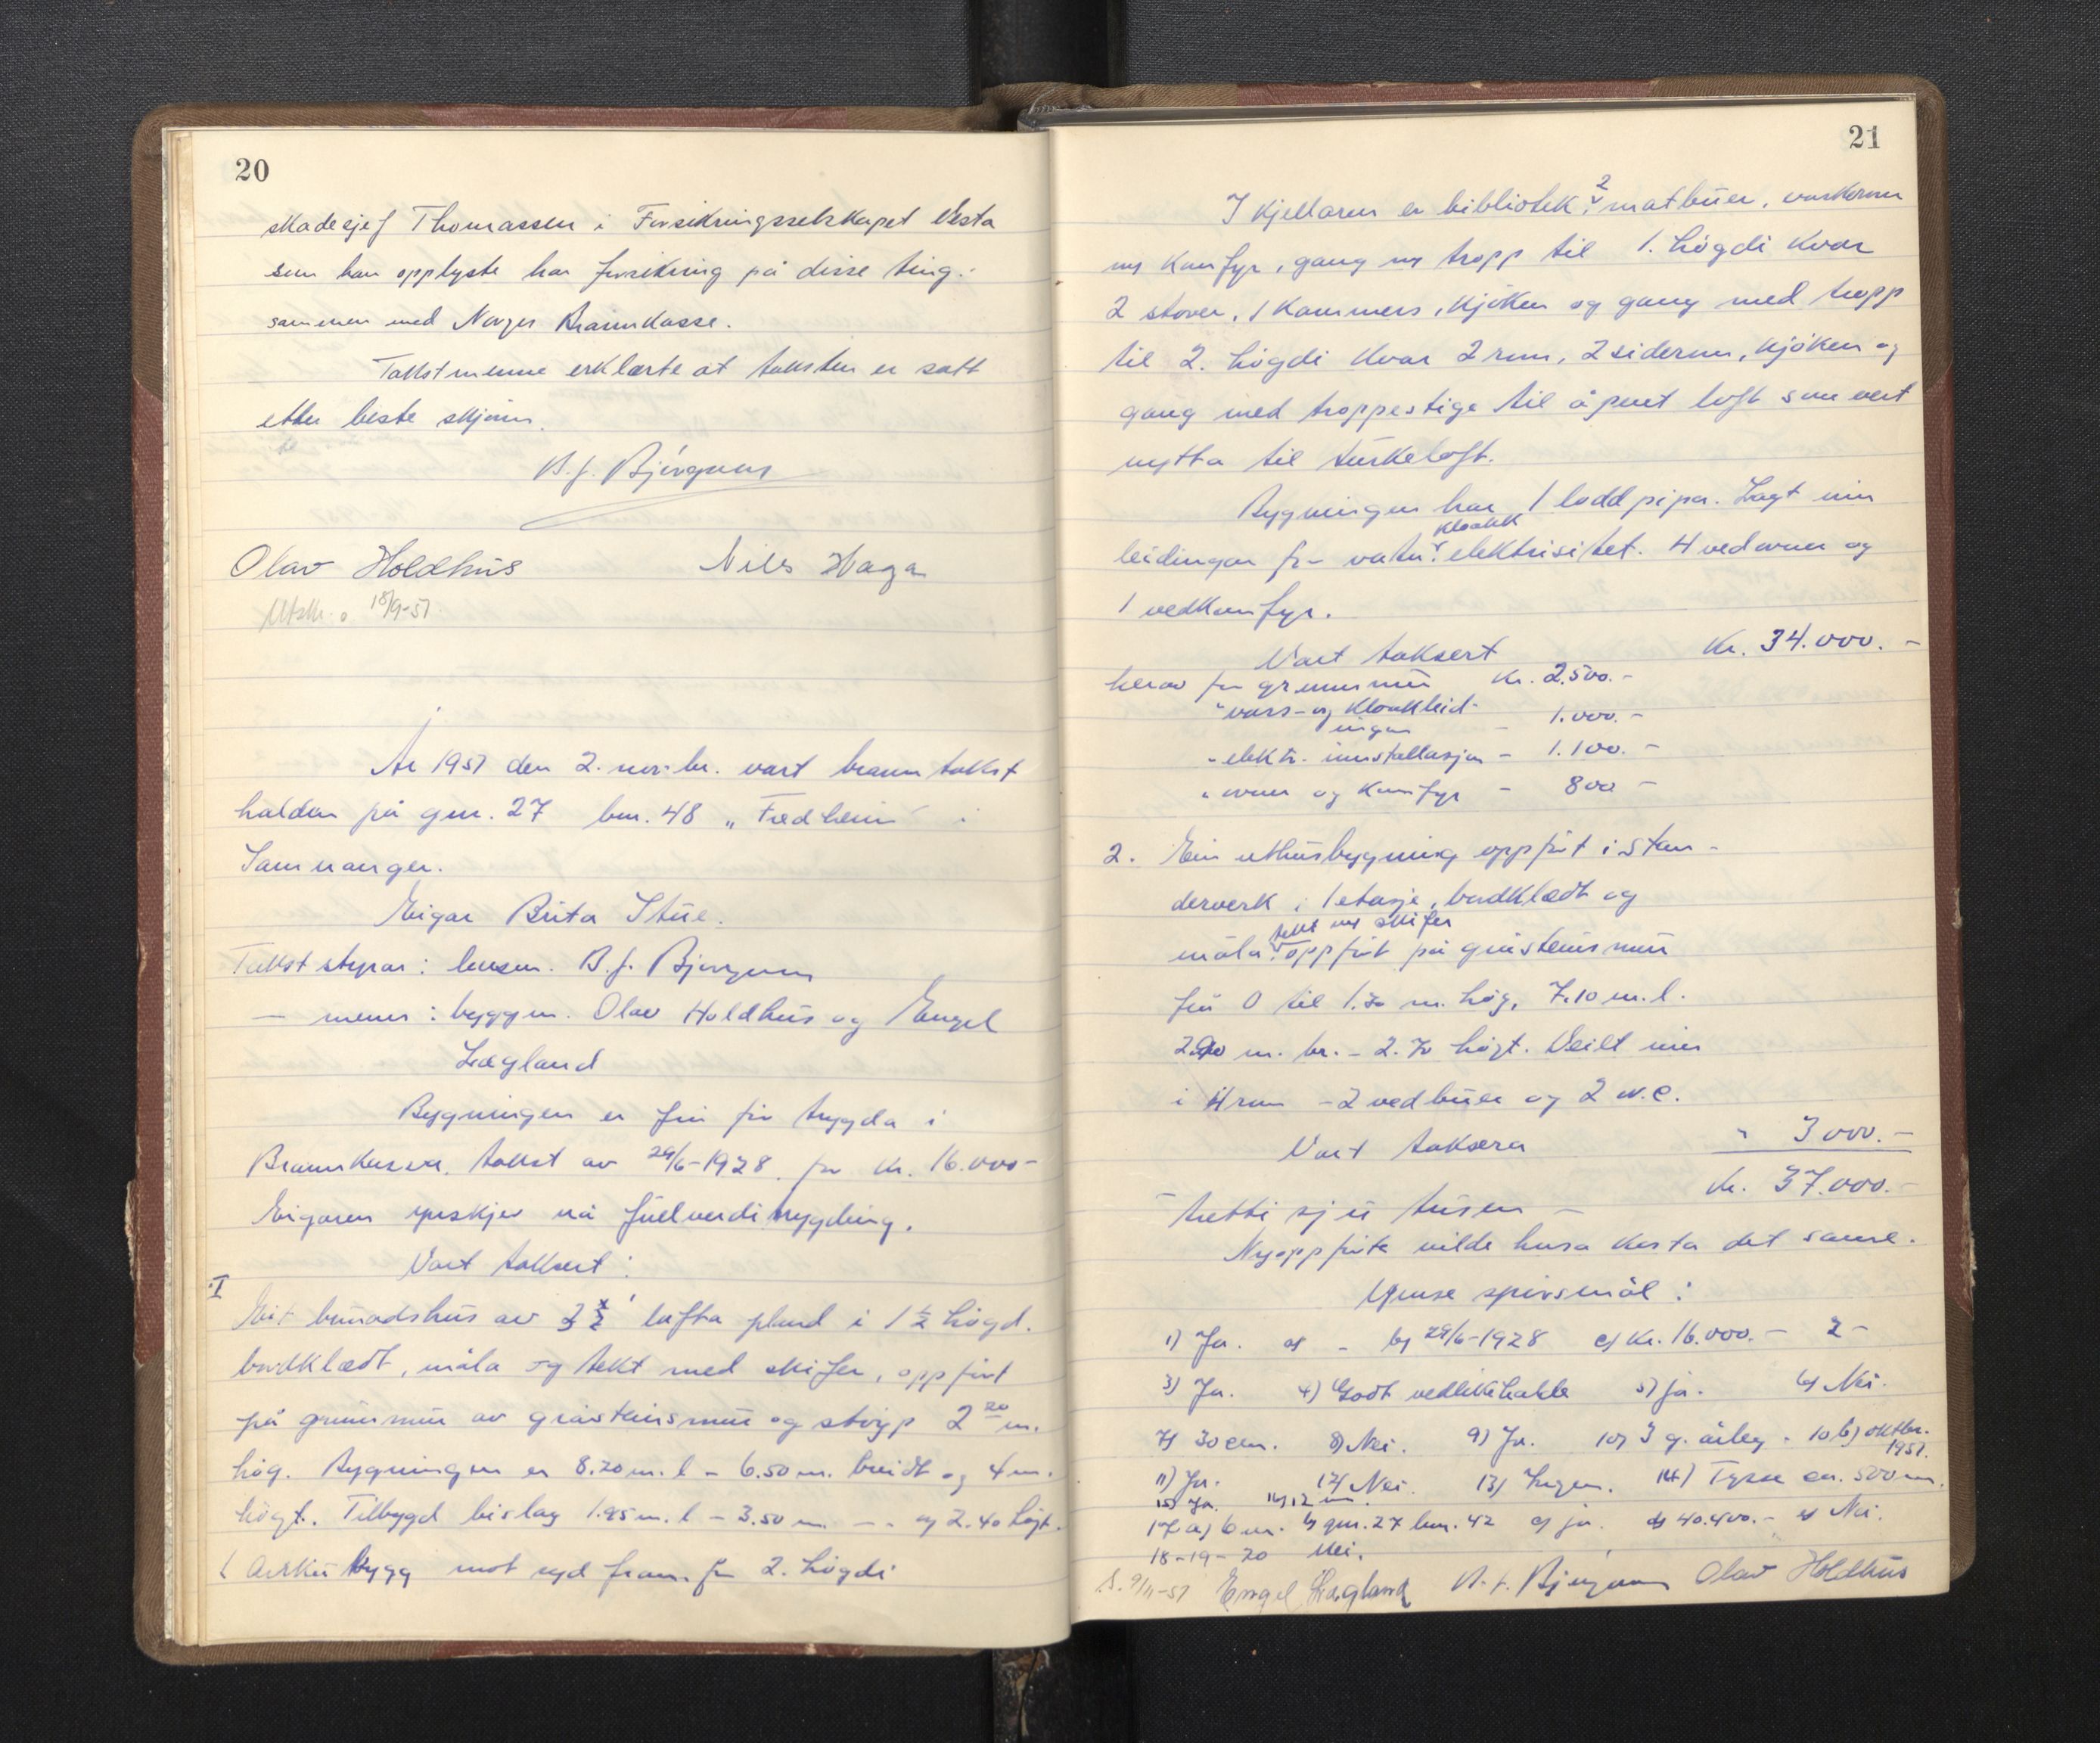 20
skadesjef Thomassen i Forsikringsselskapet Vesta
som han opplyste har forsikring på disse ting.
sammen med Norges Brannkasse.
Takstmenne erklærte at taksten er satt
etter beste skjønn.
B. J. Bjørgum
Olav Holdhus Nils Haga
Utskr. 18/9-51
År 1951 den 2. novbr. vart branntakst
halden på gnr. 27 bnr. 48 „Fredheim“ i
Samnanger.
Eigar Brita Stue.
Takststyrar: lensm. B. J. Bjørgum
— menn: byggm. Olav Holdhus og Engel
Lægland
Bygningen er før trygda i
Brannkassa, takst av 29/6-1928 for kr. 16.000-
Eigaren ynskjer nå fullverditrygding.
Vart taksert:
I
Eit bunadshus av lafta plank i 1 1/2 høgd.
bordklædt, måla og tekt med skifer, oppført
på grunnmur av gråsteinsmur og støyp 2 20 m.
høg. Bygningen er 8.20 m. l – 6.50 m. breidt og 4 m.
høgt. Tilbygd bislag 1.95 m. l – 3.50 m. — . og 2.40 høgt.
1 arkubygg mot syd fram for 2. høgdi
21
I kjellaren er bibliotek, 2 matbuer, vaskerum
m/ komfyr, gang m/ tropp til 1. høgdi kvar
2 stover, 1 kammers, kjøken og gang med tropp
til 2. høgdi kvar 2 rum, 2 siderum, kjøken og
gang med troppestige til åpent loft som vert
nytta til turkeloft.
Bygningen har 1 lodd pipa. Lagt inn
kloakk
leidingar for vatn, elektrisitet. 4 vedovner og
1 vedkomfyr.
Vart taksert Kr. 34.000.–
herav for grunnmur Kr. 2.500.–
" vass- og kloakkleid-
ingar – 1.000.–
" elektr. innstallasjon – 1.100.–
" ovner og komfyr – 800 –
2. Ein uthusbygning oppført i stan-
derverk i 1 etasje, bordklædt og
tekt m/ skifer
måla, oppført på gråsteinsmur
frå 0 til 1.30 m. høg, 7.10 m. l.
m. br. – 2.70 høgt. Deilt inn
i 4 rum – 2 vedbuer og 2 w.c.
Vart taksera " 3000.–
Kr. 37.000.–
– tretti sju tusen –
Nyoppførte vilde husa kosta det same.
Ymse spørsmål:
1) Ja. a) – b) 29/6-1928 c) Kr. 16.000.– 2 –
3) Ja. 4) Godt vedlikehalde 5) ja. 6) Nei.
7) 30 cm. 8) Nei. 9) Ja. 10) 3 g. årleg. 10 b) oktbr.
1951.
11) Ja. 12) Nei. 13) Ingen. 14) Tysse ca. 500 m.
15) Ja. 16) 12 m.
17 a) 6 m. b) gnr. 27 bnr. 42 c) ja. d) 40.400.– e) Nei.
18–19–20 Nei.
S. 9/11-51 Engel Lægland B. J. Bjørgum Olav Holdhus